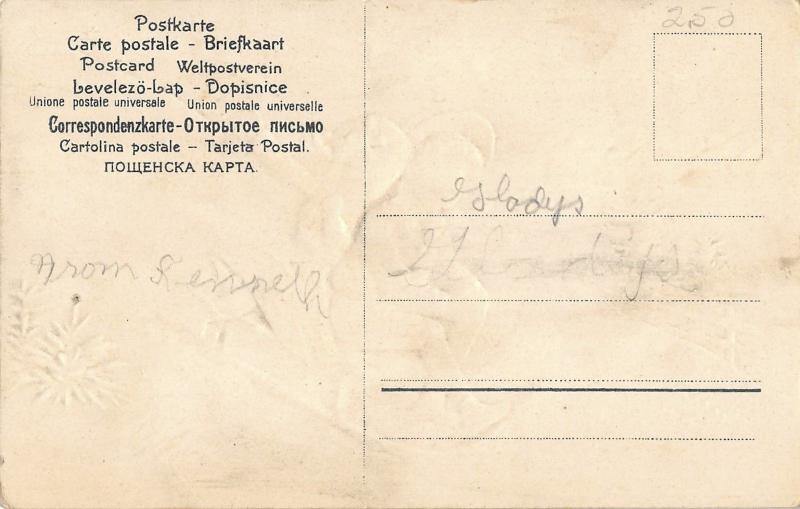 Postkarte
Carte postale - Briefkaart
Postcard Weltpostverein
Levelezö-Lap - Dopisnice
Unione postale universale Union postale universelle
Correspondenzkarte-Открытое письмо
Cartolina postale - Tarjeta Postal.
ПОЩЕНСКА КАРТА.
250
Gladys
From Kenneth